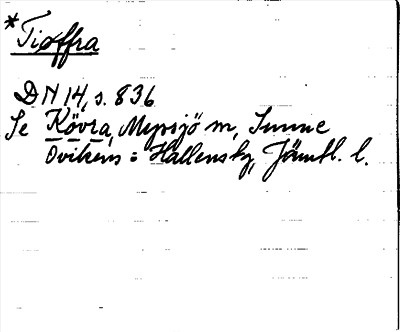 *Tioffra
DN 14, s. 836
Se Kövra, Myssjö m, Sunne
Ovikens o Hallens sk, Jämtl. l.